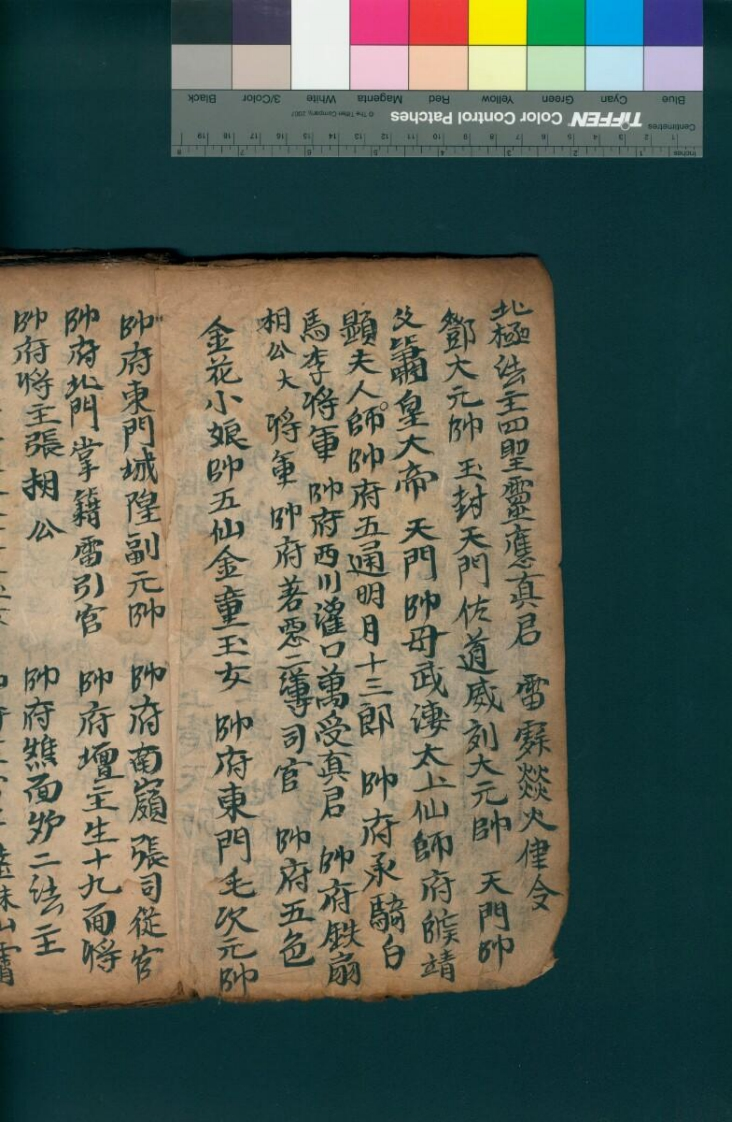 北極法主四聖靈應真君 雷霹燚火律令
鄧大元帥 玉封天門佐道威刻大元帥 天門帥
父蕭皇大帝 天門帥母武淒太上仙師府皝靖
顕夫人師帥府五通明月十三郎 帥府承騎白
馬李將軍 帥府西川灌口萬受真君 帥府鉄扇
相公大將軍 帥府著雲二薄司官 帥府五色
金花小娘帥五仙金童玉女 帥府東門毛次元帥
帥府東門城隍副元帥 帥府南嶺張司從官
帥府北門掌籍雷引官 帥府壇主生十九面將
帥府將主張相公 帥府二法主
TIFFEN Color Control Patches
© The Tiffen Company, 2007
Blue Cyan Green Yellow Red Magenta White 3/Color Black
Centimetres 1 2 3 4 5 6 7 8 9 10 11 12 13 14 15 16 17 18 19
Inches 1 2 3 4 5 6 7 8